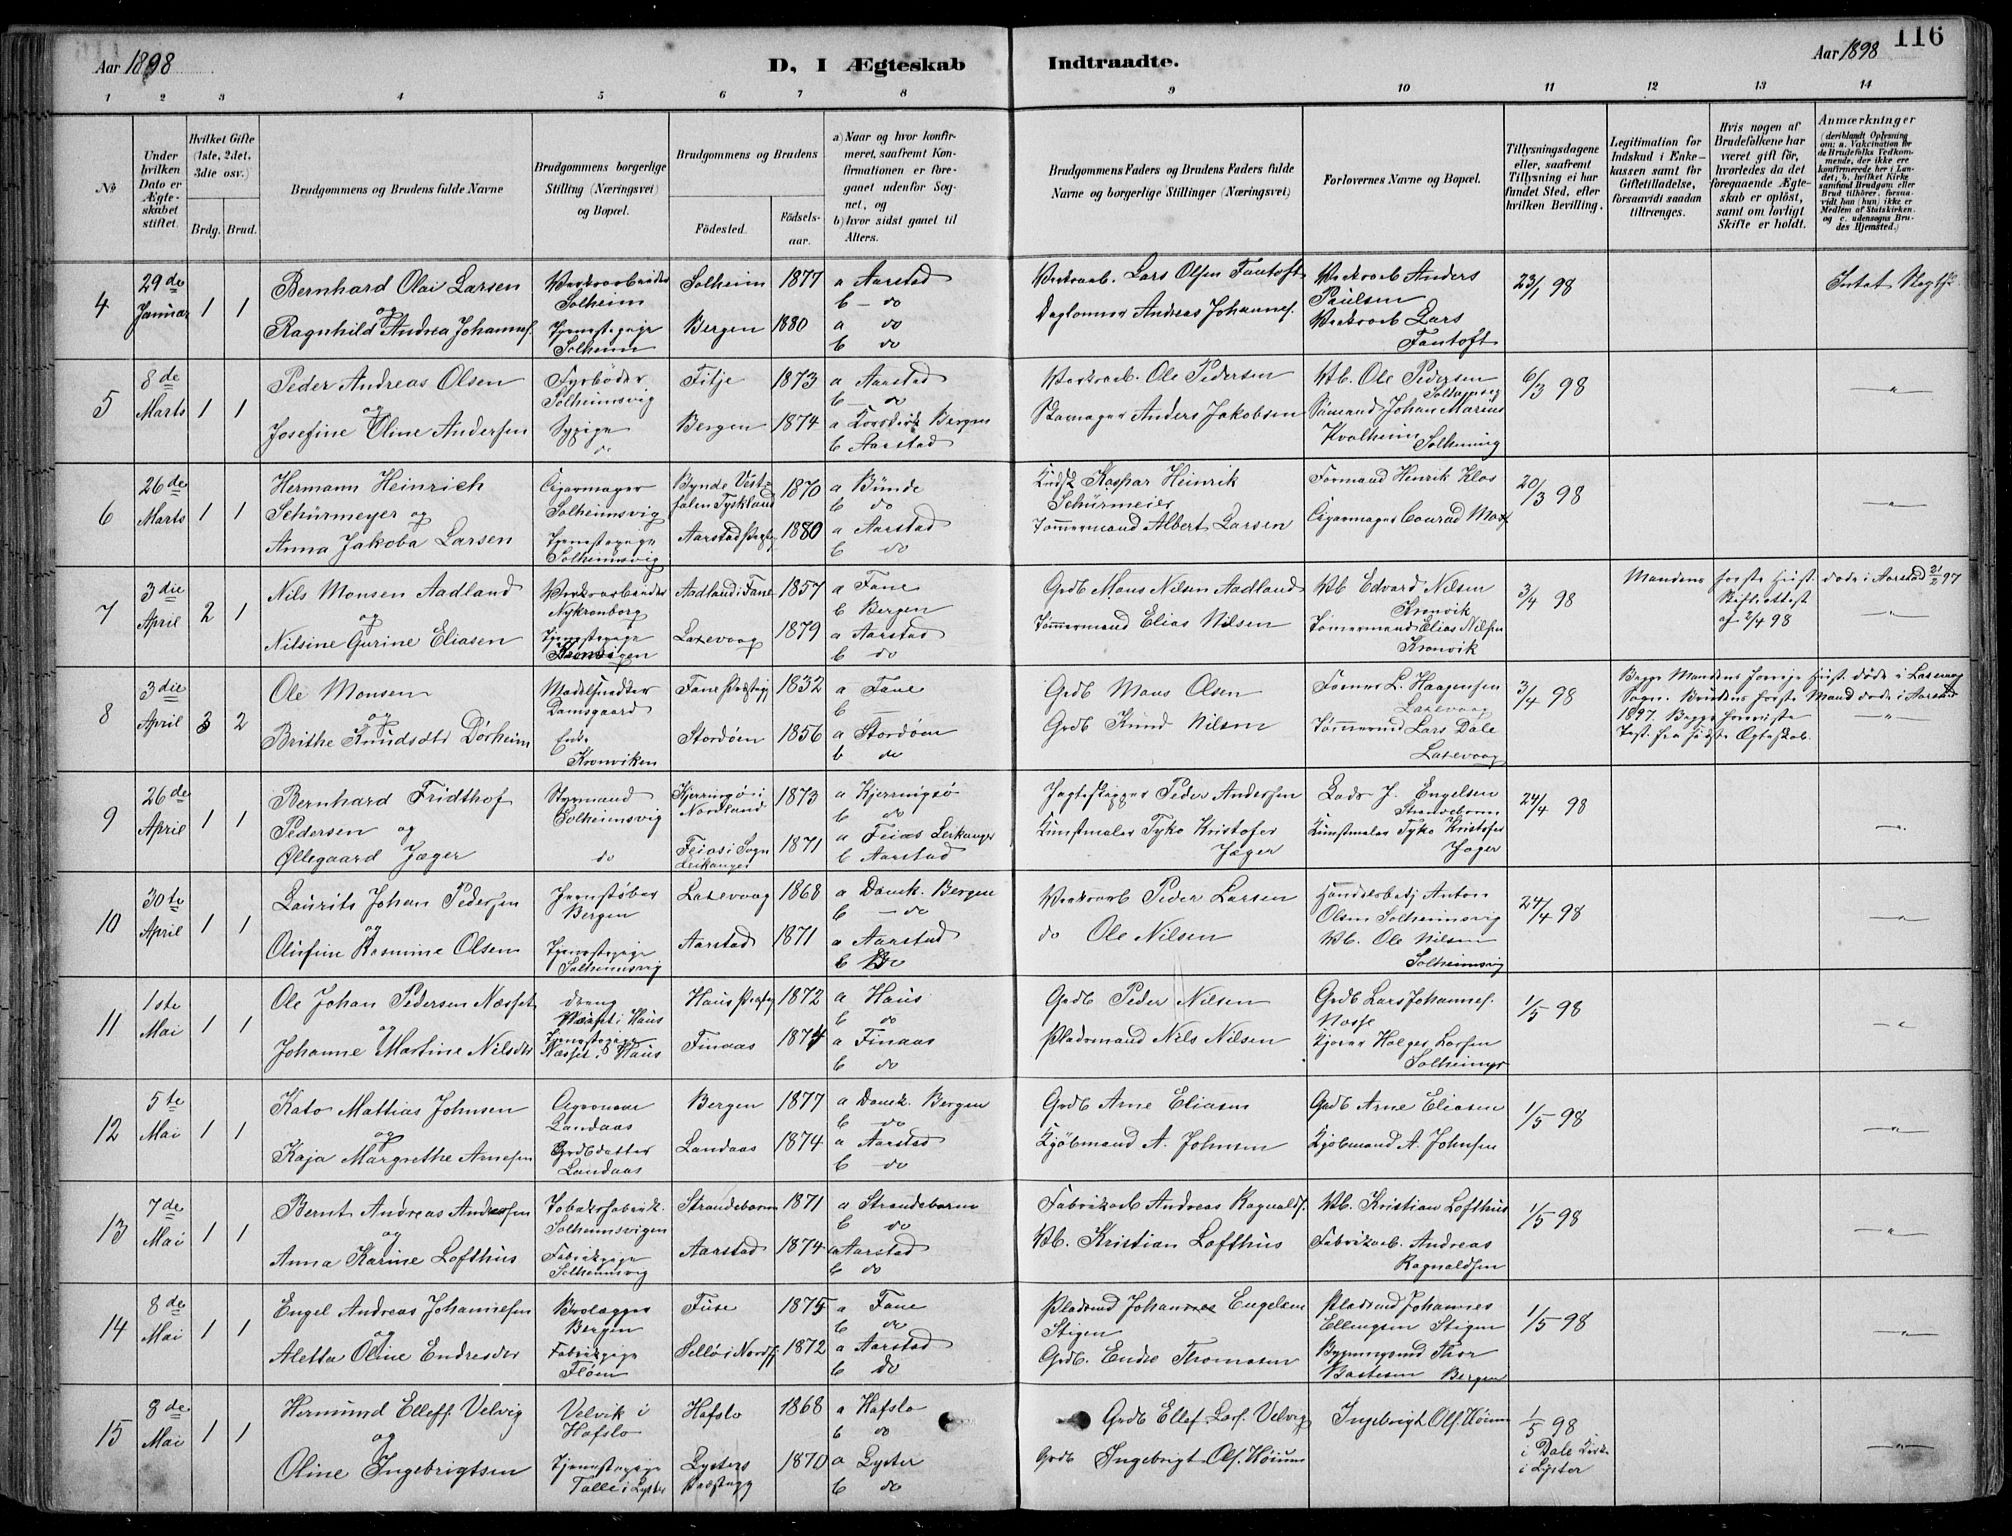 116
Aar 1898
D, I Ægteskab Indtraadte.
Aar 1898
1 2 3 4 5 6 7 8 9 10 11 12 13 14
№
Under hvilken Dato er Ægteskabet stiftet.
Hvilket Gifte (1ste, 2det, 3die osv.)
Brdg. Brud.
Brudgommens og Brudens fulde Navne
Brudgommens borgerlige Stilling (Næringsvei) og Bopæl.
Brudgommens og Brudens
Födested.
Födselsaar.
a) Naar og hvor konfirmeret, saafremt Konfirmationen er foregaaet udenfor Sognet, og
b) hvor sidst gaaet til Alters.
Brudgommens Faders og Brudens Faders fulde Navne og borgerlige Stillinger (Næringsvei)
Forlovernes Navne og Bopæl.
Tillysningsdagene eller, saafremt Tillysning ei har fundet Sted, efter hvilken Bevilling.
Legitimation for Indskud i Enkekassen samt for Giftetilladelse, forsaavidt saadan tiltrænges.
Hvis nogen af Brudefolkene har været gift för, hvorledes da det foregaaende Ægteskab er oplöst, samt om lovligt Skifte er holdt.
Anmærkninger
(deriblandt Oplysning om: a. Vaccination for de Brudefolks Vedkommende, der ikke ere konfirmerede her i Landet; b. hvilket Kirkesamfund Brudgom eller Brud tilhörer, forsaavidt han (hun) ikke er Medlem af Statskirken, og c. udensogns Brudes Hjemsted.)
4 29de Januar 1 1
Bernhard Olai Larsen
og
Ragnhild Andrea Johannes.
Verksarbeider Solheim
Tjenestepige Solheim
Solheim 1877 a Aarstad
b do
Bergen 1880 a do
b do
Verksarb. Lars Olsen Fantoft
Daglønner Andreas Johannes.
Verksarb Anders Paulsen
Verksarb Lars Fantoft
23/1 98
5 8de Marts 1 1
Peder Andreas Olsen
og
Josefine Oline Andersen
Fyrbøder Solheimsvig
Sypige do
Fitje 1873 a Aarstad
b do
Bergen 1874 a Korskirk Bergen
b Aarstad
Verksarb. Ole Pedersen
Skomager Anders Jakobsen
Vb. Ole Pedersen Solhmsvig
Sømand Johan Marius Kvalheim
6/3 98
"
6 26de Marts 1 1
Hermann Heinrich
Schürmeyer og
Anna Jakoba Larsen
Cigarmager Solheimsvig
Tjenestepige Solheimsvig
Bynde Vestfalen Tyskland 1870 a Bünde
b do
Aarstad 1880 a Aarstad
b do
Kaspar Heinrik Schürmeier
Tømmermand Albert Larsen
Formand Henrik Klos
Cigarmager Conrad
20/3 98
"
7 3die April 2 1
Nils Monsen Aadland
og
Nilsine Gurine Eliasen
Verksarbeider Nykronborg
Tjenestepige Kronvigen
Aadland i Fane 1857 a Fane
b Bergen
Laxevaag 1879 a Aarstad
b do
Grdb Mons Nilsen Aadland
Tømmermand Elias Nilsen
Vb Edvard Nilsen Kronvik
Tømermand Elias Nilsen Kronvik
3/4 98
Mandens første Hust. døde i Aarstad 21/2 97
Skifteattest
af 2/4 98
"
8 3die April 3 2
Ole Monsen
og
Brithe Knudsdtr Dørheim
Damsgaard
Enke Kronviken
Fane Præstegj 1832 a Fane
b
Stordøen 1856 a Stordøen
b do
Grdb Mons Olsen
Grdb Knud Nilsen
L. Haagensen Laxevaag
Tømmermd Lars Dale Laxevaag
3/4 98
Begge Mandens forrige Hust. døde i Laxevaag
Sogn. Brudens første Mand døde i Aarstad
1897.
"
9 26de April 1 1
Bernhard Fridthof
Pedersen og
Øllegaard Jæger
Styrmand Solheimsvig
do
Kjerringø i Nordland 1873 a Kjerringø
b do
Feios i Sogn Leikanger 1871 a Feios Leikanger
b Aarstad
Jægteskipper Peder Andersen
Kunstmaler Tyko Kristofer Jæger
J. Engelsen
Kunstmaler Tyko Kristofer Jæger
24/4 98
"
10 30te April 1 1
Laurits Johan Pedersen
og
Olufine Rasmine Olsen
Jernstøber Bergen
Tjenestepige Solheimsvig
Laxevaag 1868 a Domk. Bergen
b do
Aarstad 1871 a Aarstad
b Do
Verksarb Peder Larsen
do Ole Nilsen
Handelsbetj Anton Olsen Solheimsvig
Vb. Ole Nilsen Solheimsvig
24/4 98
"
11 1ste Mai 1 1
Ole Johan Pedersen Næsset
og
Johanne Martine Nilsdtr
dreng Næsset i Haus
Tjenestepige Næsset i Haus
Haus 1872 a Haus
b do
Finaas 1874 a Finaas
b do
Grdb Peder Nilsen
Pladsmand Nils Nilsen
Grdb Lars Johannes.
Holger Larsen
1/5 98
"
12 5te Mai 1 1
Kato Mattias Johnsen
og
Kaja Margrethe Arnesen
Landaas
Grdbdatter Landaas
Bergen 1877 a Domk. Bergen
b do
Landaas 1874 a Aarstad
b do
Grdb Arne Eliasen
Kjøbmand A. Johnsen
Grdb Arne Eliasen
Kjøbmand A. Johnsen
1/5 98
"
13 7de Mai 1 1
Bernt Andreas Andersen
og
Anna Karine Lofthus
Tobaksfabrik. Solheimsvigen
Fabrikpige Solheimsvig
Strandebarm 1871 a Strandebarm
b do
Aarstad 1874 a Aarstad
b do
Fabrikarb Andreas Ragnalds.
Vb. Kristian Lofthus
Vb. Kristian Lofthus
Fabrikarb. Andreas Ragnaldsen
1/5 98
"
14 8de Mai 1 1
Engel Andreas Johannesen
og
Aletta Oline Endresdtr
Brolægger Bergen
Fabrikpige Fløen
Fuse 1875 a Fane
b do
Sellø i Nordf 1872 a Aarstad
b do
Pladsmd Johannes Engelsen Stigen
Grdb. Endre Thomasen
Pladsmd Johannes Ellingsen Stigen
Bygningsmd Thor Bastesen Bergen
1/5 98
"
15 8de Mai 1 1
Hermund Ellefs. Velvig
og
Oline Ingebrigtsen
Velvik i Hafslo
Tjenestepige Talle i Lyster
Hafslo 1868 a Hafslo
b do
Lysters Præstegj 1870 a Lyster
b do
Grdb Ellef Lars. Velvig
Grdb Ingebrigt Ols. Høium
Ingebrigt Ols. Høium
1/5 98
i Dale Kirke
i Lyster
"